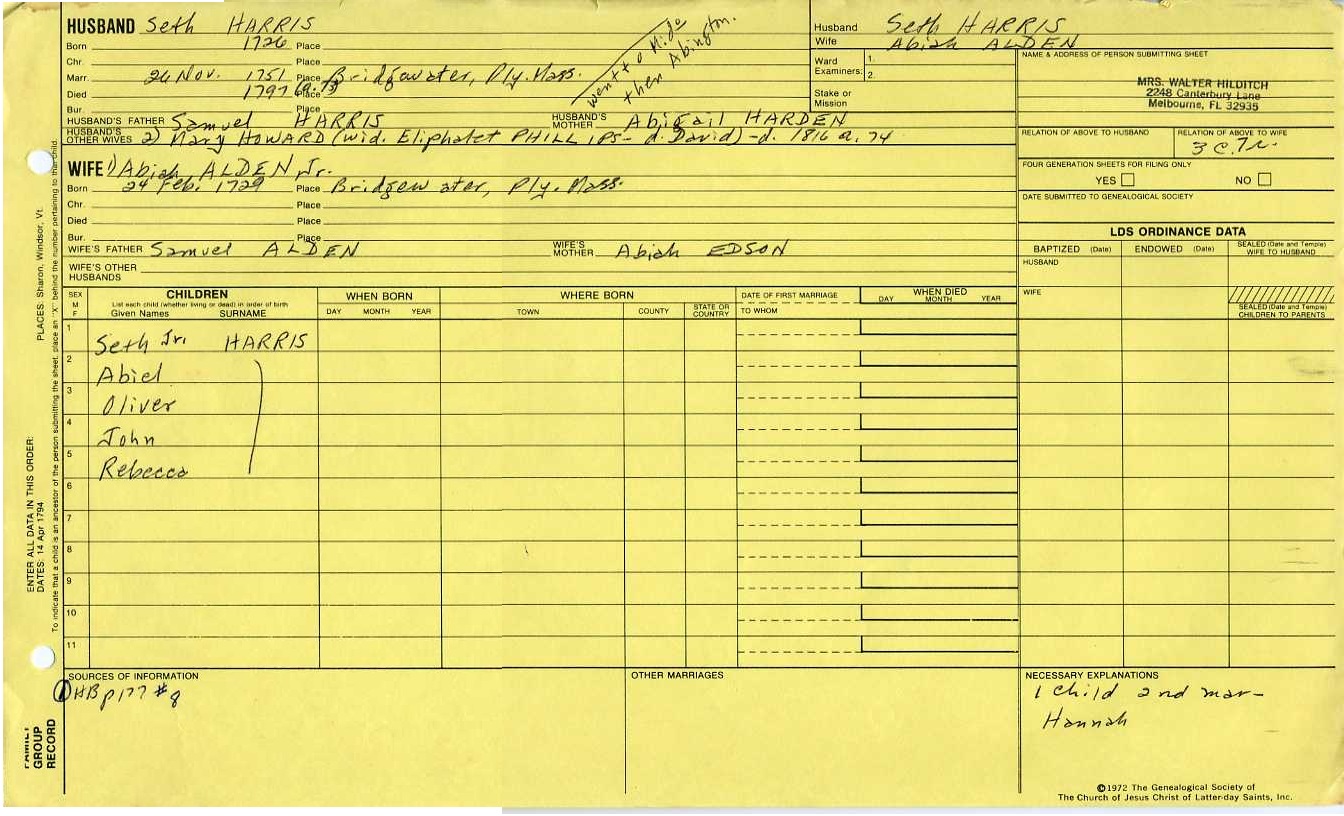 HUSBAND Seth HARRIS
Born 1726 Place
Chr. Place
Marr. 26 Nov. 1751 Place Bridgewater, Ply. Mass.
Died 1797 (a. 73) Place
Bur. Place
went to Mide
then Abington.
HUSBAND'S FATHER Samuel HARRIS HUSBAND'S MOTHER Abigail HARDEN
HUSBAND'S OTHER WIVES 2) Mary HOWARD (wid. Eliphalet PHILLIPS - d. David) - d. 1816 a. 74
WIFE 1) Abiah ALDEN Jr.
Born 24 Feb. 1729 Place Bridgewater, Ply. Mass.
Chr. Place
Died Place
Bur. Place
WIFE'S FATHER Samuel ALDEN WIFE'S MOTHER Abiah EDSON
WIFE'S OTHER HUSBANDS
Husband Seth HARRIS
Wife Abiah ALDEN
Ward Examiners: 1.
2.
Stake or Mission
NAME & ADDRESS OF PERSON SUBMITTING SHEET
MRS. WALTER HILDITCH
2248 Canterbury Lane
Melbourne, FL 32935
RELATION OF ABOVE TO HUSBAND RELATION OF ABOVE TO WIFE
3 C. 7 r.
FOUR GENERATION SHEETS FOR FILING ONLY
YES NO
DATE SUBMITTED TO GENEALOGICAL SOCIETY
LDS ORDINANCE DATA
BAPTIZED (Date) ENDOWED (Date) SEALED (Date and Temple) WIFE TO HUSBAND
HUSBAND
WIFE
SEALED (Date and Temple) CHILDREN TO PARENTS
SEX M F
CHILDREN
List each child (whether living or dead) in order of birth
Given Names SURNAME
WHEN BORN
DAY MONTH YEAR
WHERE BORN
TOWN COUNTY STATE OR COUNTRY
DATE OF FIRST MARRIAGE
TO WHOM
WHEN DIED
DAY MONTH YEAR
1 Seth Jr. HARRIS
2 Abiel
3 Oliver
4 John
5 Rebecca
6
7
8
9
10
11
SOURCES OF INFORMATION
1 HB p177 #8
OTHER MARRIAGES
NECESSARY EXPLANATIONS
1 child 2nd mar-
Hannah
©1972 The Genealogical Society of
The Church of Jesus Christ of Latter-day Saints, Inc.
ENTER ALL DATA IN THIS ORDER:
DATES: 14 Apr 1794 PLACES: Sharon, Windsor, Vt.
To indicate that a child is an ancestor of the person submitting the sheet, place an "X" behind the number pertaining to that child.
FAMILY
GROUP
RECORD